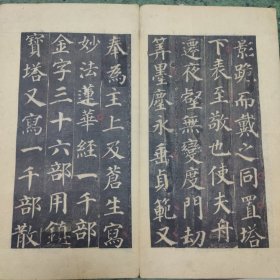 影跪而戴之同置塔
下表至敬也使夫舟
遷夜壑無變度門劫
筭墨塵永垂貞範又
奉為主上及蒼生寫
妙法蓮華経一千部
金字三十六部用鎮
寶塔又寫一千部散